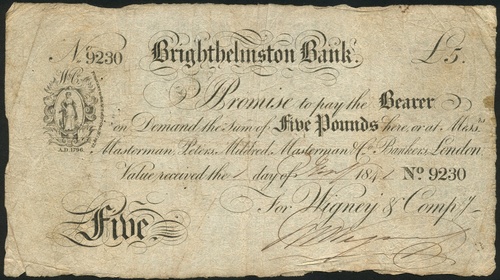 No. 9230 Brighthelmston Bank. £5.
W&Co
I Promise to pay the Bearer
on Demand the Sum of Five Pounds here, or at Messrs
Masterman, Peters, Mildred, Masterman & Co. Bankers, London
A.D. 1796
Value received the 1 day of 1841 No 9230
Five For Wigney & Compy